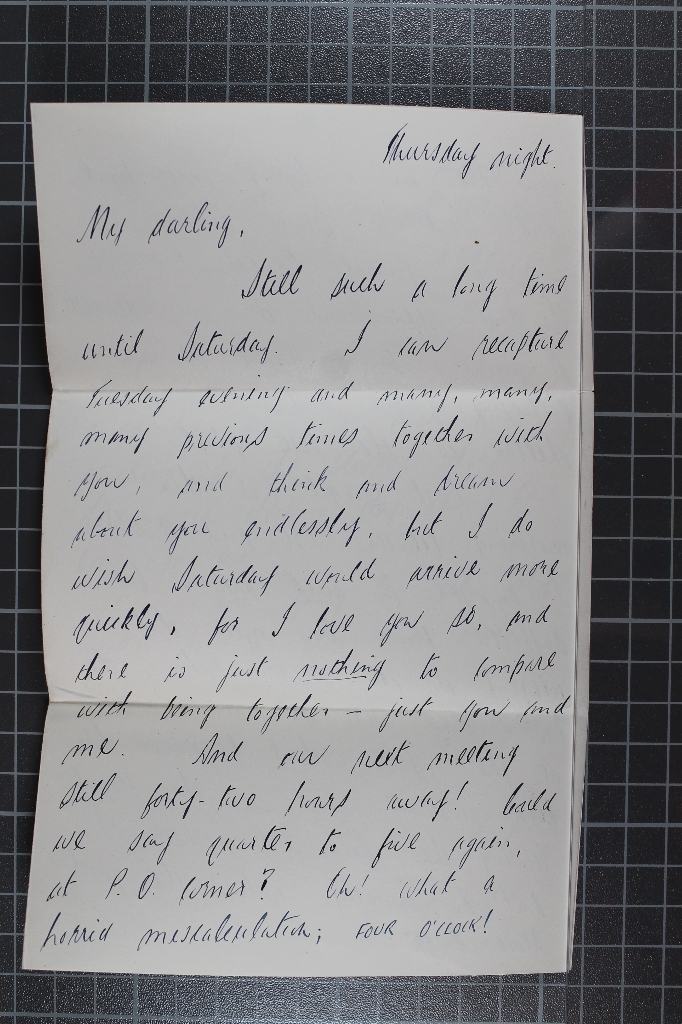 Thursday night.
My darling,
Still such a long time
until Saturday. I can recapture
Tuesday evening and many, many,
many previous times together with
you, and think and dream
about you endlessly, but I do
wish Saturday would arrive more
quickly, for I love you so, and
there is just nothing to compare
with being together – just you and
me. And our next meeting
still forty-two hours away! Could
we say quarter to five again,
at P.O. corner? Oh! what a
horrid miscalculation; FOUR O'CLOCK!